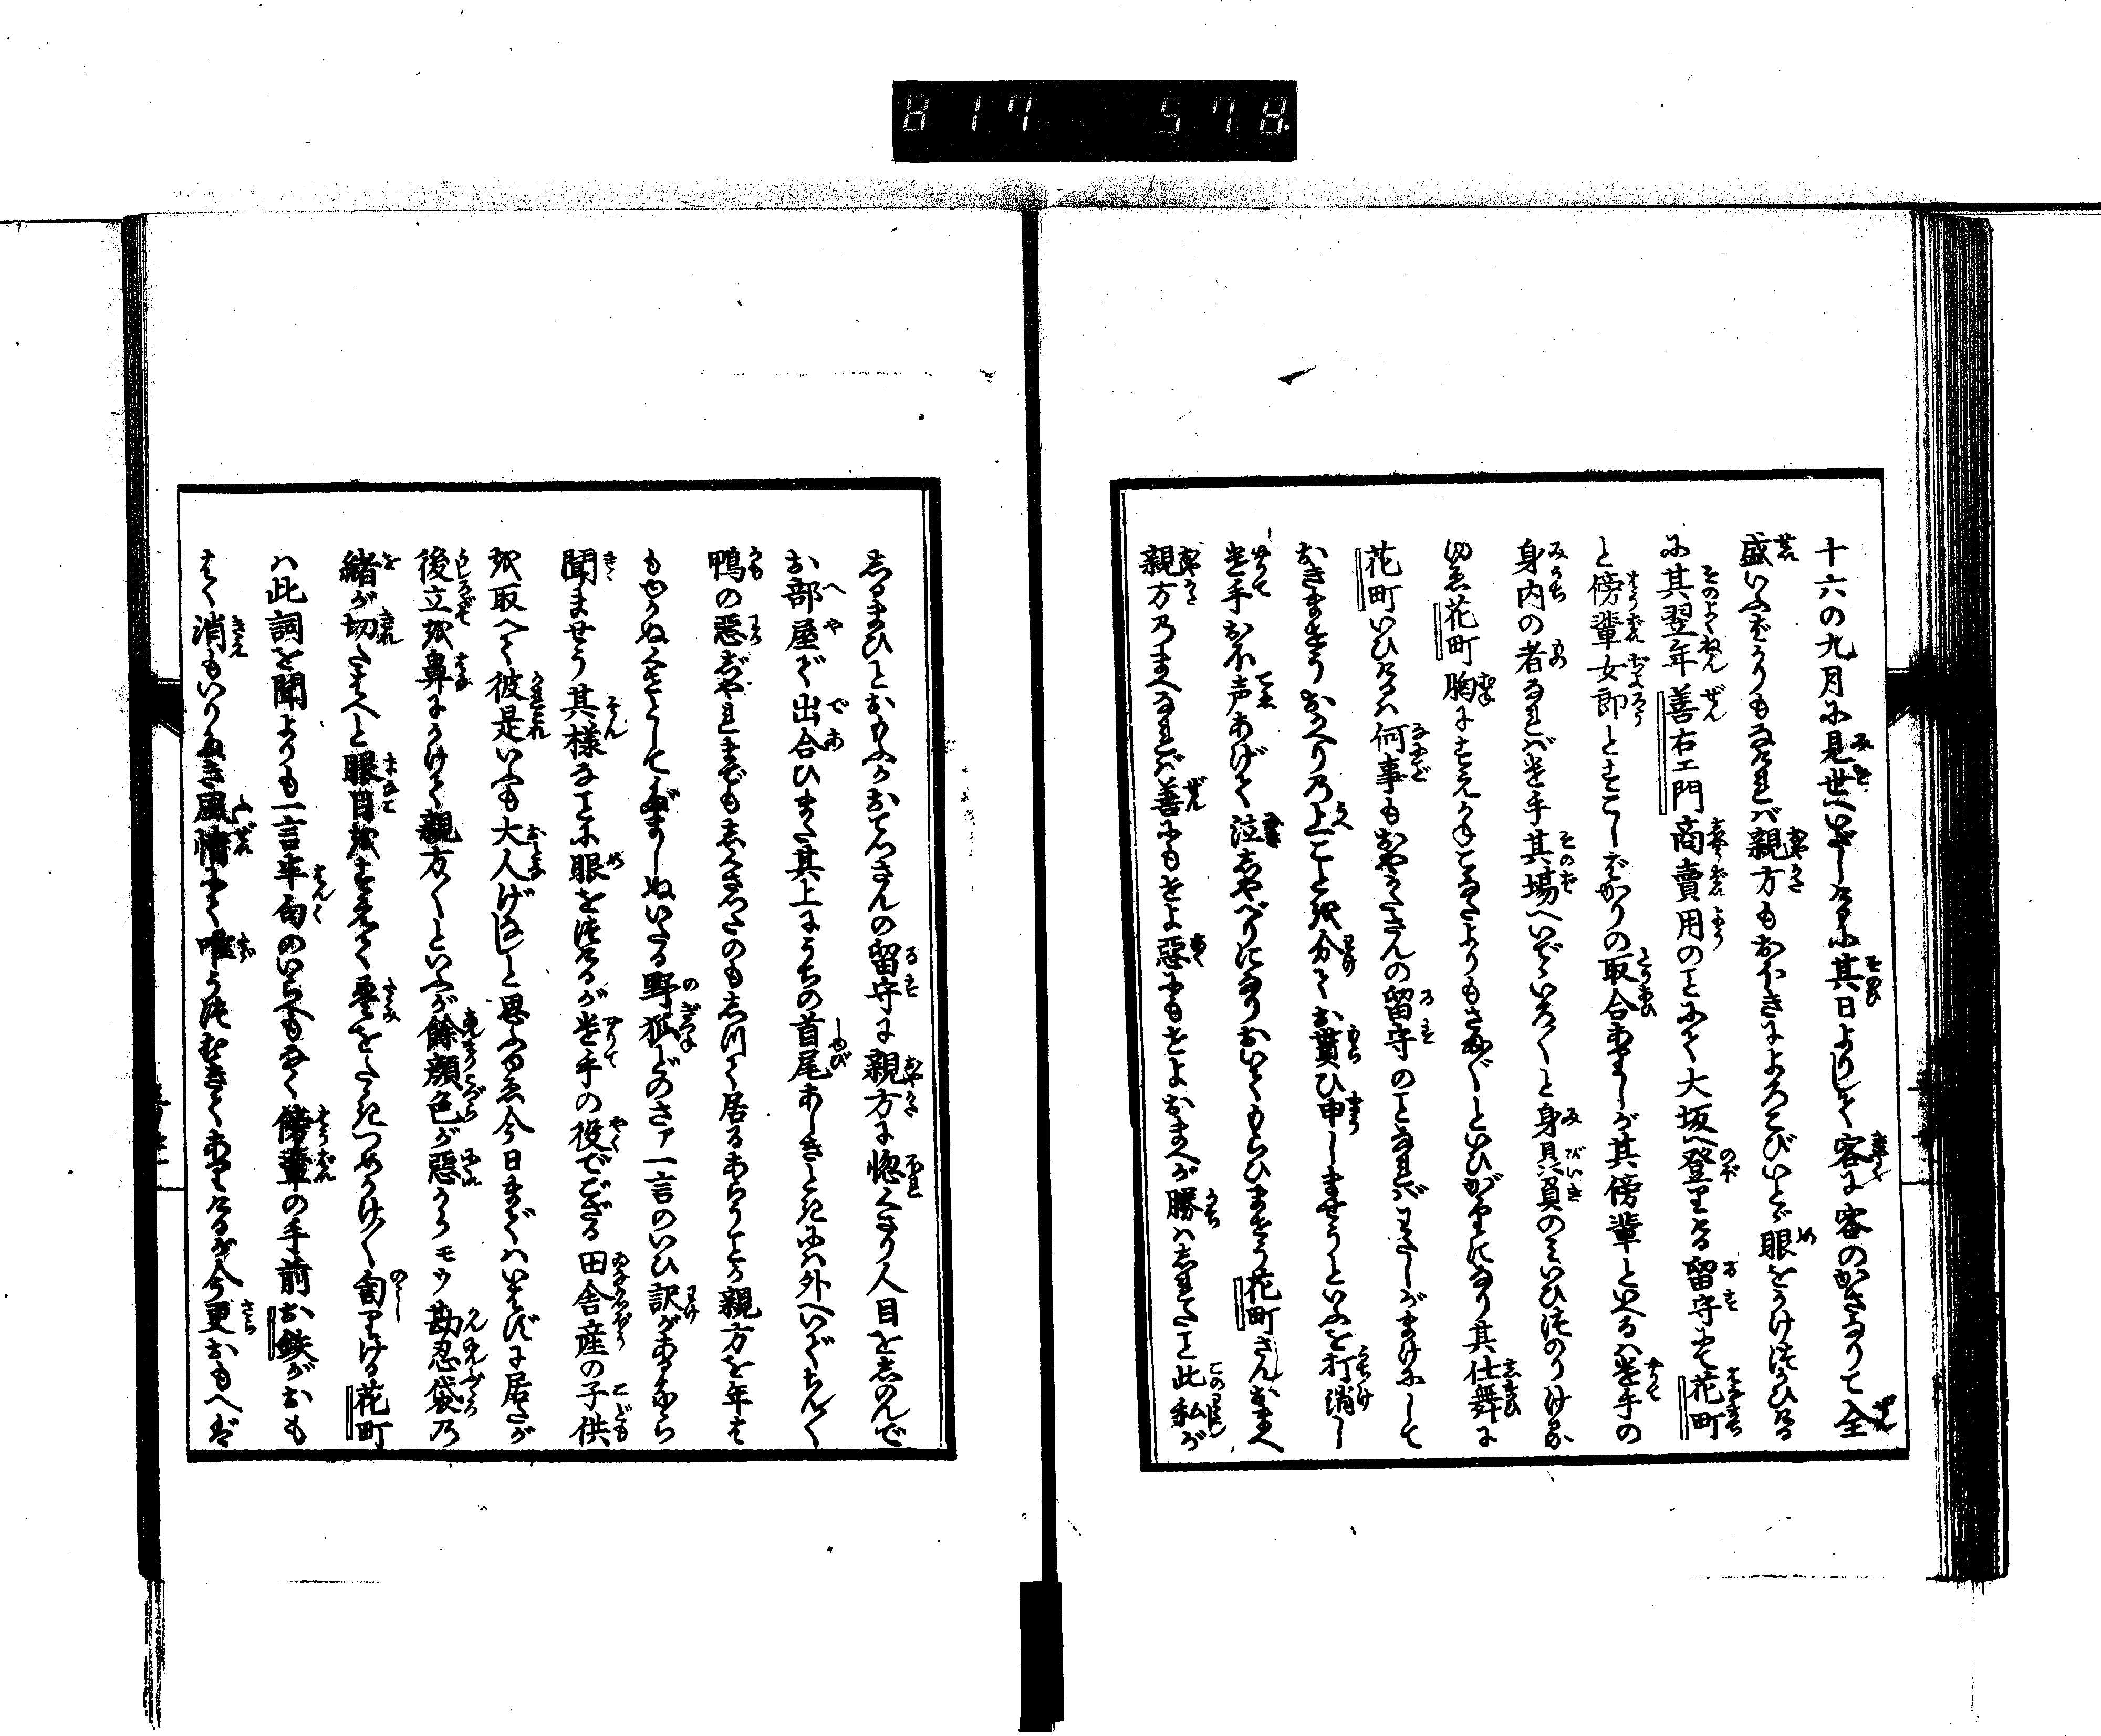 817 578.
十六の九月に見世へいだしけるに其日よりして客に客のかさなりて全
盛いふばかりもなければ親方もおほきによろこびいとゞ眼をかけ使ひける
に其翌年善右エ門商賣用のことにて大坂へ登りける留守にて花町
と傍輩女郎とすこしばかりの取合ありしが其傍輩といへるハやり手の
身内の者なればやり手其場へいでいろ〳〵と身贔負のミいひつのりけるが
ゆゑ花町胸にすゑかねこなたよりもさま〴〵といひがゝりになり其仕舞に
花町いひけるハ何事もおやかたさんの留守のことなればわたしがまけにして
おきませうおかへりの上ことを分てお貰ひ申しませうといふを打消し
やり手おほ声あげて泣しやべりになりおいてもらひませう花町さんおまへ
親方のまへなれば善にもせよ悪にもせよおまへが勝ハしれたこと此私が
しるまひとおもふかおてらさんの留守に親方に惚くさり人目をしのんで
お部屋で出合ひまた其上にうちの首尾あしきときにハ外へいでちん〳〵
鴨の悪じやれまでもしくさつたのもしつて居るあらうことか親方を年は
もゆかぬくせとしてだましぬいたる野狐どのサァ一言のいひ訳があるなら
聞ませう其様なことに眼をつけるがやり手の役でござる田舎産の子供
を取へて彼是いふも大人げなしと思ふゆゑ今日まではいはずに居たが
後立を鼻にかけて親方〳〵といふが餘顔色が悪いからモウ勘忍袋の
緒が切たはへと眼目をすゑて畳をたゝきつめかけ〳〵詈りける花町
ハ此詞を聞よりも一言半句のいらへもなく傍輩の手前お鉄がおも
はく消もいりたき風情にて唯うつむきてありけるが今更おもへば